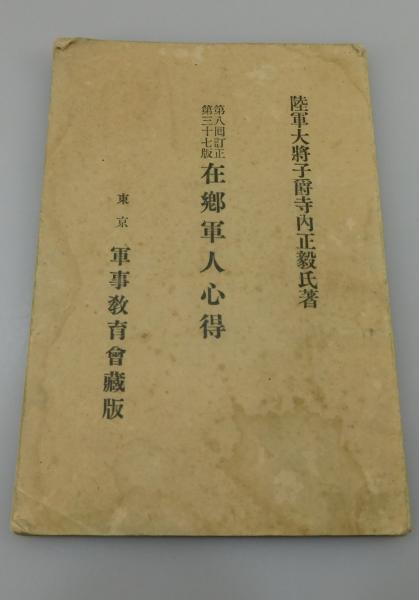 陸軍大將子爵寺內正毅氏著
第八回訂正
第三十七版
在鄉軍人心得
東京
軍事敎育會藏版